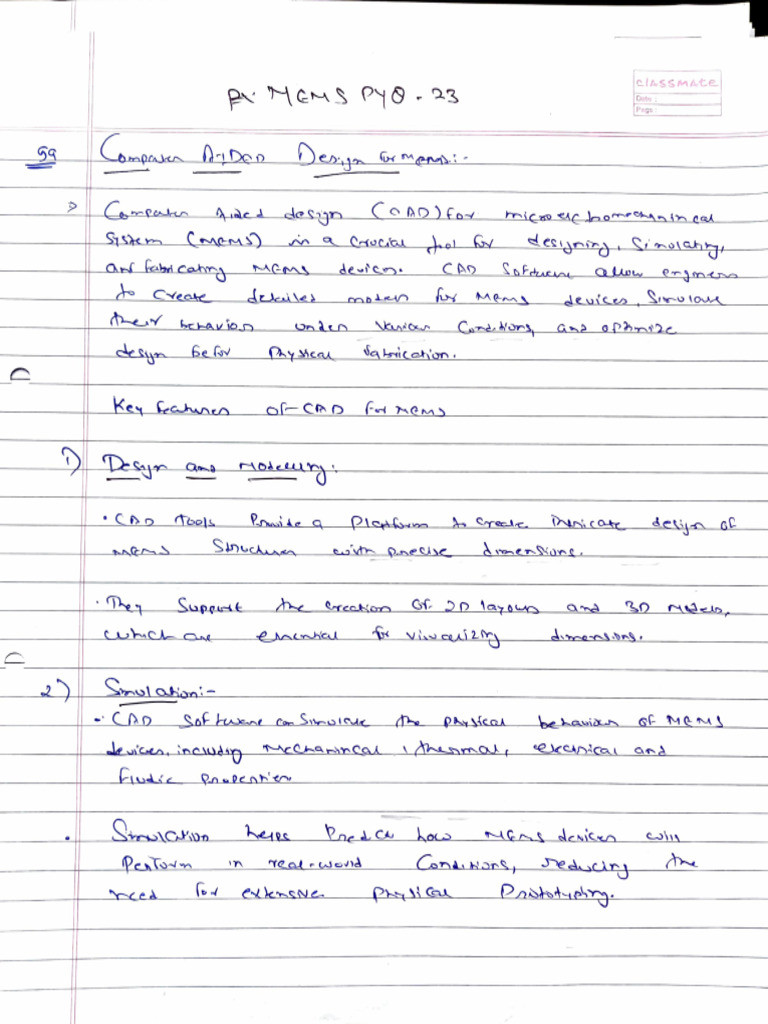 MEMS PYQ - 23
classmate
Date :
Page :
5a Computer Aided Design for MEMS :-
Computer Aided design (CAD) for microelectromechanincal
System (MEMS) is a crucial tool for designing, Simulating,
and fabricating MEMS devices. CAD Software allow engineers
to create detailed models for MEMS devices, Simulate
their behavior under various Conditions, and optimize
design befor Physical fabrication.
Key features of CAD for MEMS
1) Design and Modelling :
• CAD Tools Provide a Platform to create intricate design of
MEMS Structures with precise dimensions.
• They Support the creation of 2D layouts and 3D Models,
which are essential for visualizing dimensions.
2) Simulation :-
• CAD Software can Simulate the physical behaviour of MEMS
devices, including Mechanincal, thermal, electrical and
fludic properties
• Simulation helps Predict how MEMS devices will
Perform in real-world Conditions, reducing the
need for extensive Physical Prototyping.